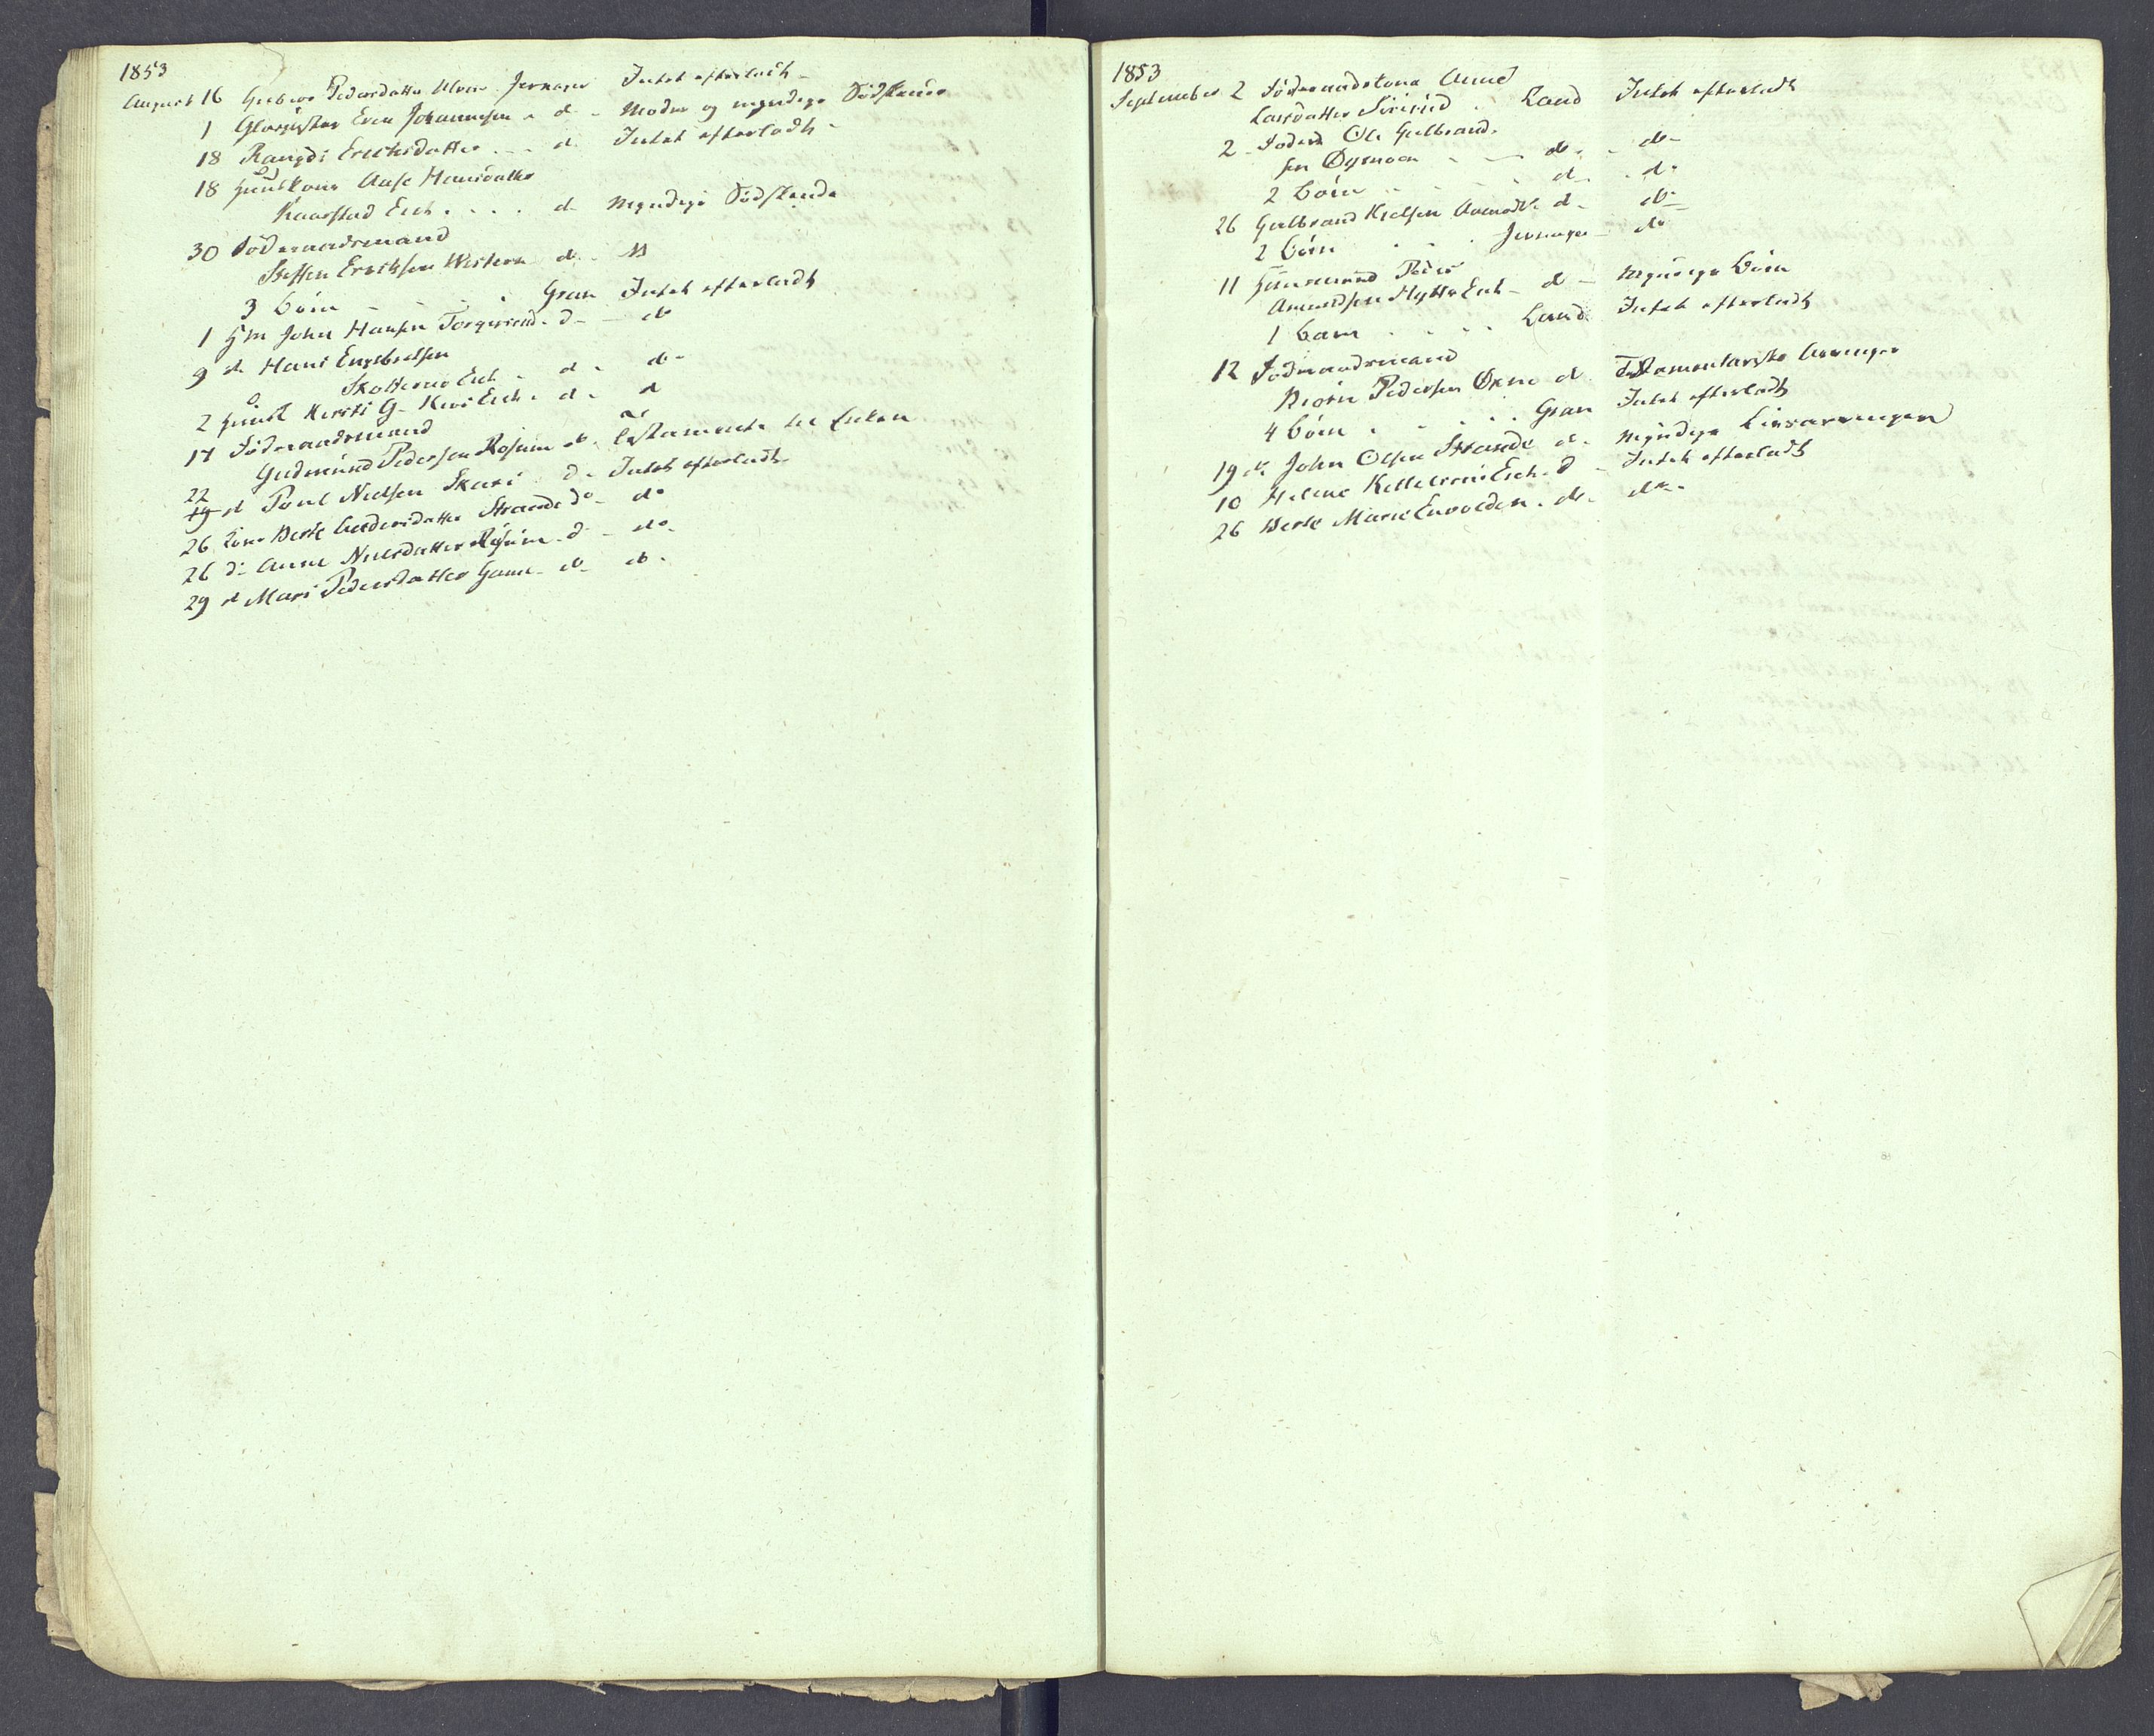 1853
August 16 Gubjør Pedersdatter Alm Jevnager Intet efterladt
1 Glarmester Even Johannesen d Moder og myndige Sødskende
18 Rangdi Erichsdatter d. Intet efterladt
18 Huuskone Aase Hansdatter
Kaarstad Eieh. d Myndige Sødskende
30 Føderaadsmand
Steffen Erichsen Western d.
3 børn Gran Intet efterladt
1 Hm John Hansen Torgersrud d do
9 d. Hans Engebretsen
Skotterud Eieh. d. do
2 Kirsti G. Eieh. d. d
17 Føderaadsmand
Gudmund Pedersen Rosum do. Testamente til Enken
22
19 d Poul Nielsen Skari d. Intet efterladt
26 Kone Berte Andersdatter Strande do do
26 d. Anne Nielsdatter d do
29 d Mari Pedersdatter do do
1853
September 2 Føderaadskone Anne
Larsdatter Land Intet efterladt
2 Ole Gulbrand-
sen Øysmoen do. do
2 børn d. do
26 Gulbrand Kielsen d. do
2 børn Jevnager do
11 Huusmand Peder
Amundsen Hytta Eieh d Myndige Børn
1 barn Land Intet efterladt
12 Føderaadsmand
Bjørn Pedersen d Testamentariske Arvinger
4 børn Gran Intet efterladt
19 d. John Olsen Strande d. Myndige Livsarvinger
10 Helene Eieh. d Intet efterladt
26 Berte Marie do. do